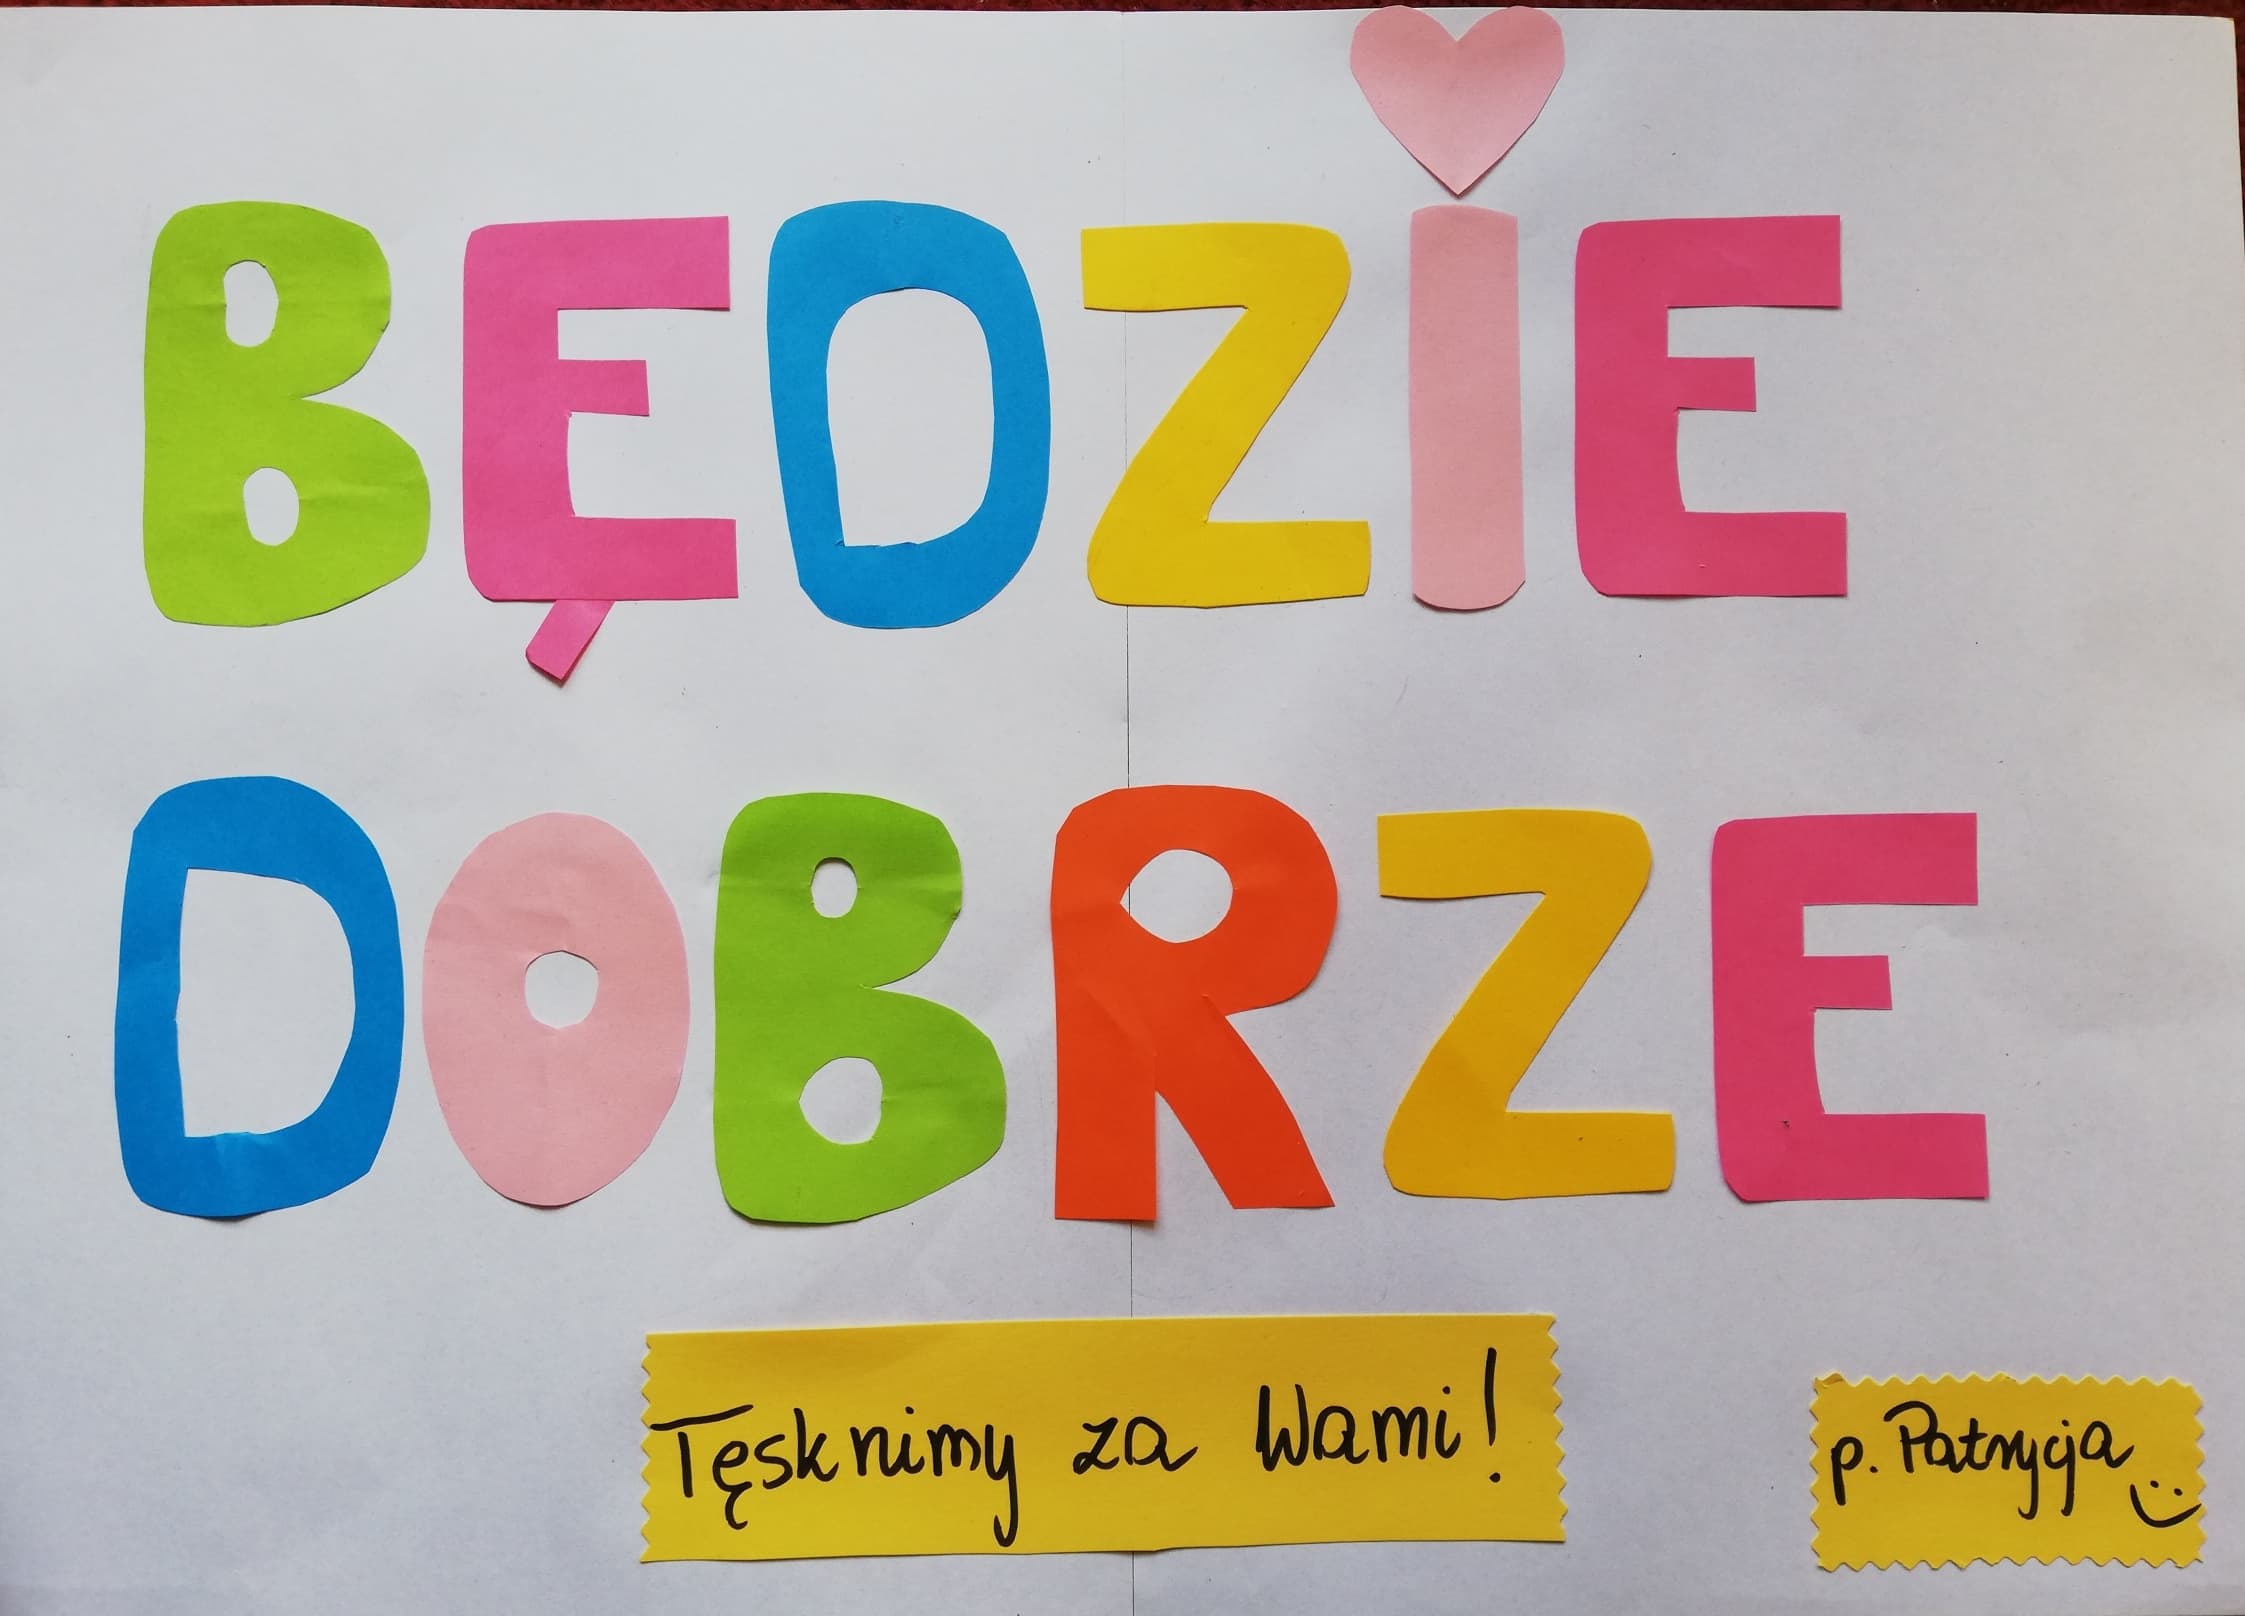 BĘDZiE
DOBRZE
Tęsknimy za Wami!
p. Patrycja